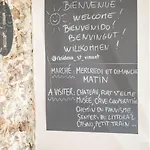 BIENVENUE
WELCOME
BIENVENIDO!
BENVINGUT!
WILLKOMMEN!
MARCHÉ: MERCREDI ET DIMANCHE
MATIN
A VISITER: CHATEAU, FORT ST ELME
MUSÉE, CAVE COOPERATIVE
CHEMIN DU FAUVISME
SENTIER DU LITTORAL
PETIT TRAIN ...